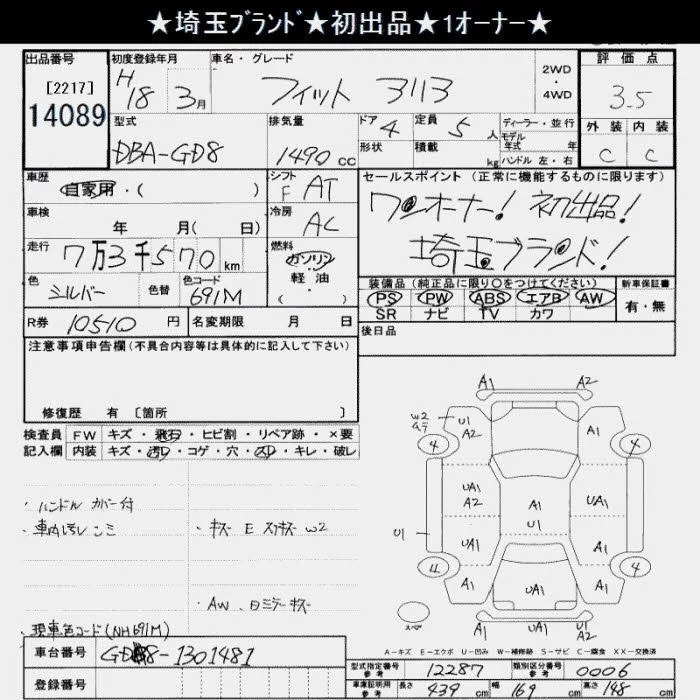 ★埼玉ブランド★初出品★1オーナー★
出品番号 初度登録年月 車名・グレード 評価点
[2217] H18 3月 フィット 2WD・4WD 3.5
14089
型式 排気量 ドア 4 定員 5 人 ディーラー・並行 外装 内装
モデル年式 年
DBA-GD8 1490cc 形状 積載 kg ハンドル 左・右 C C
車歴 シフト セールスポイント(正常に機能するものに限ります)
自家用・( ) F AT ワンオーナー! 初出品!
車検 冷房
年 月(日) AC 埼玉ブランド!
走行 7万3千570km 燃料
ガソリン
軽油
( )
色 色替 色コード 装備品(純正品に限り○をつけてください) 新車保証書
シルバー 691M PS PW ABS エアB AW 有・無
SR ナビ TV カワ
R券 10510円 名変期限 月 日 後日品
注意事項申告欄(不具合内容等は具体的に記入して下さい)
修復歴 有 〔箇所 〕
検査員 FW キズ・飛石・ヒビ割・リペア跡・×要
記入欄 内装 キズ・汚レ・コゲ・穴・スレ・キレ・破レ
・ハンドル カバー付
・車内汚レ シミ ・キズ E W2
・AW、 ミラーキズ
・現車色コード(NH691M)
A1 A2
W2 U1 A2 A1
4 4
UA1 A2 A1 UA1
U1 U1
UA1 UA1
4 4
A1 UA1 A1
スペア
UA1 UA1 U1 A2
A-キズ E-エクボ U-凹み W-補修跡 S-サビ C-腐食 XX-交換済
車台番号 GD8-1301481
登録番号
型式指定番号 参考 12287 類別区分番号 参考 0006
車庫証明用 参考 長さ 439cm 幅 169cm 高さ 148cm